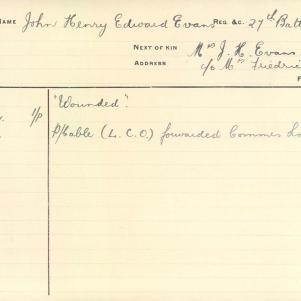 NAME John Henry Edward Evans REG. &C. 27th Batt
NEXT OF KIN Mrs J. H. Evans
ADDRESS c/o Mrs Fredric
1/P "Wounded".
P/Cable (L.C.O.) forwarded Commes Lo